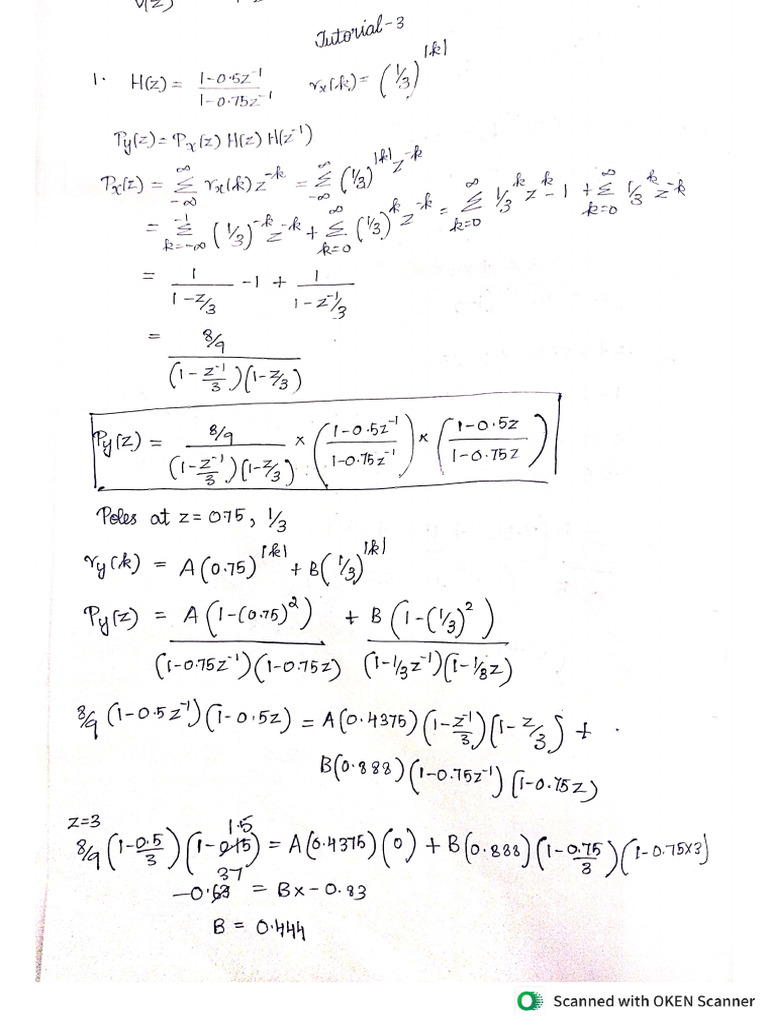 V(z)
Tutorial-3
1. H(z) = (1-0.5z⁻¹)/(1-0.75z⁻¹) rₓ(k) = (1/3)^|k|
Py(z) = Pₓ(z) H(z) H(z⁻¹)
Pₓ(z) = Σ_{-∞}^{∞} rₓ(k) z^-k = Σ_{-∞}^{∞} (1/3)^|k| z^-k
= Σ_{k=-∞}^{-1} (1/3)^-k z^-k + Σ_{k=0}^{∞} (1/3)^k z^-k = Σ_{k=0}^{∞} 1/3^k z^k - 1 + Σ_{k=0}^{∞} 1/3^k z^-k
= 1/(1-z/3) - 1 + 1/(1-z⁻¹/3)
= (8/9)/((1-z⁻¹/3)(1-z/3))
Py(z) = (8/9)/((1-z⁻¹/3)(1-z/3)) × ((1-0.5z⁻¹)/(1-0.75z⁻¹)) × ((1-0.5z)/(1-0.75z))
Poles at z = 075, 1/3
ry(k) = A(0.75)^|k| + B(1/3)^|k|
Py(z) = A(1-(0.75)²)/((1-0.75z⁻¹)(1-0.75z)) + B(1-(1/3)²)/((1-1/3z⁻¹)(1-1/3z))
8/9 (1-0.5z⁻¹)(1-0.5z) = A(0.4375)(1-z⁻¹/3)(1-z/3) +
B(0.888)(1-0.75z⁻¹)(1-0.75z)
z=3
8/9 (1-0.5/3)(1-1.5) = A(0.4375)(0) + B(0.888)(1-0.75/3)(1-0.75×3)
-0.37 = B×-0.83
B = 0.444
Scanned with OKEN Scanner